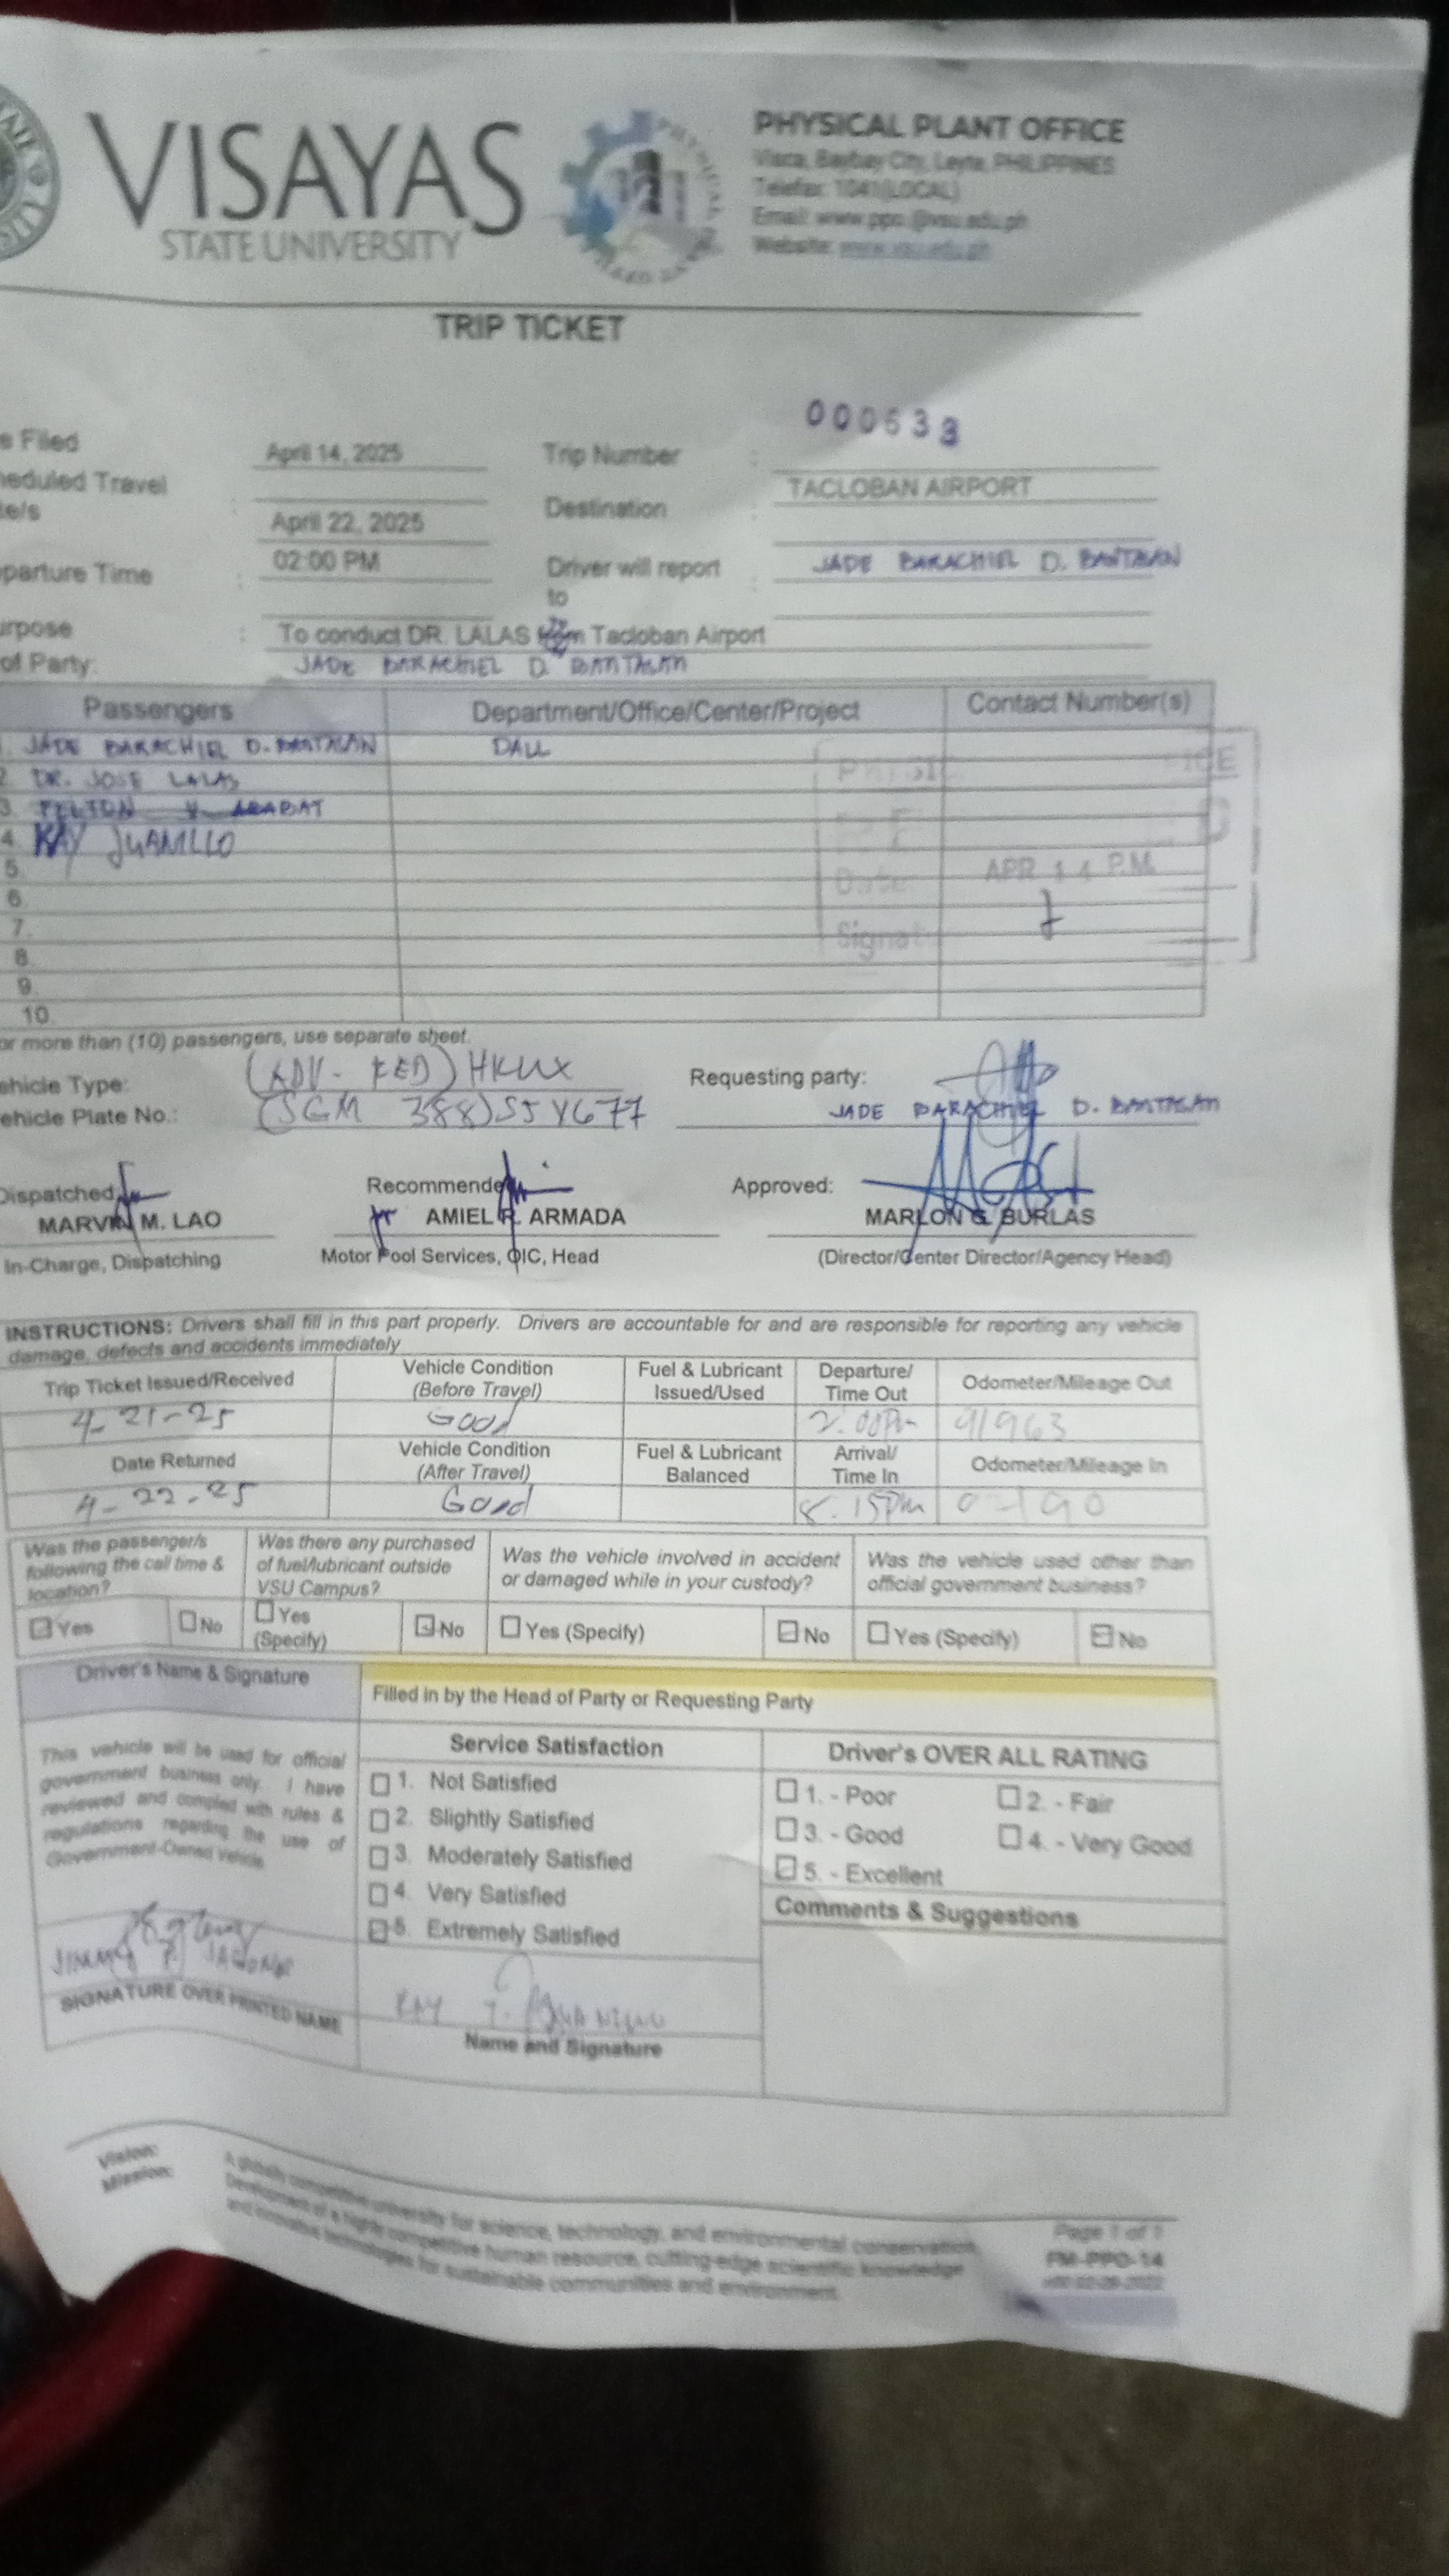 VISAYAS
STATE UNIVERSITY
PHYSICAL PLANT OFFICE
Visca, Baybay City, Leyte, PHILIPPINES
Telefax: 1041(LOCAL)
Email: www.ppo.@vsu.edu.ph
Website: www.vsu.edu.ph
TRIP TICKET
e Filed April 14, 2025 Trip Number : 000633
heduled Travel Destination : TACLOBAN AIRPORT
te/s April 22, 2025
parture Time : 02:00 PM Driver will report to : JADE BARACHIEL D. BANTASAN
urpose : To conduct DR. LALAS Tacloban Airport
of Party: JADE BARACHIEL D. BANTASAN
Passengers Department/Office/Center/Project Contact Number(s)
1. JADE BARACHIEL D. BANTASAN DALL
2. DR. JOSE LALAS
3.
4. KAY JUANILLO
5.
6.
7.
8.
9.
10.
Date: APR 14 P.M.
or more than (10) passengers, use separate sheet.
ehicle Type: (ADV- RED) HILUX Requesting party:
ehicle Plate No.: (SGM 388) S5Y677 JADE BARACHIEL D. BANTASAN
Dispatched Recommende Approved:
MARVIN M. LAO AMIEL R. ARMADA MARLON G. BURLAS
In-Charge, Dispatching Motor Pool Services, OIC, Head (Director/Center Director/Agency Head)
INSTRUCTIONS: Drivers shall fill in this part properly. Drivers are accountable for and are responsible for reporting any vehicle
damage, defects and accidents immediately
Trip Ticket Issued/Received Vehicle Condition (Before Travel) Fuel & Lubricant Issued/Used Departure/ Time Out Odometer/Mileage Out
4-21-25 Good 2:00Pm 91963
Date Returned Vehicle Condition (After Travel) Fuel & Lubricant Balanced Arrival/ Time In Odometer/Mileage In
4-22-25 Good 8:15Pm
Was the passenger/s following the call time & location? Was there any purchased of fuel/lubricant outside VSU Campus? Was the vehicle involved in accident or damaged while in your custody? Was the vehicle used other than official government business?
Yes No Yes (Specify) No Yes (Specify) No Yes (Specify) No
Driver's Name & Signature
Filled in by the Head of Party or Requesting Party
Service Satisfaction Driver's OVER ALL RATING
This vehicle will be used for official
government business only. I have
reviewed and complied with rules &
regulations regarding the use of
Government-Owned Vehicle.
1. Not Satisfied
2. Slightly Satisfied
3. Moderately Satisfied
4. Very Satisfied
5. Extremely Satisfied
1. - Poor 2. - Fair
3. - Good 4. - Very Good
5. - Excellent
Comments & Suggestions
SIGNATURE OVER PRINTED NAME
Name and Signature
Vision: A globally competitive university for science, technology, and environmental conservation
Mission: Development of a highly competitive human resource, cutting-edge scientific knowledge
and innovative technologies for sustainable communities and environment.
Page 1 of 1
FM-PPO-14